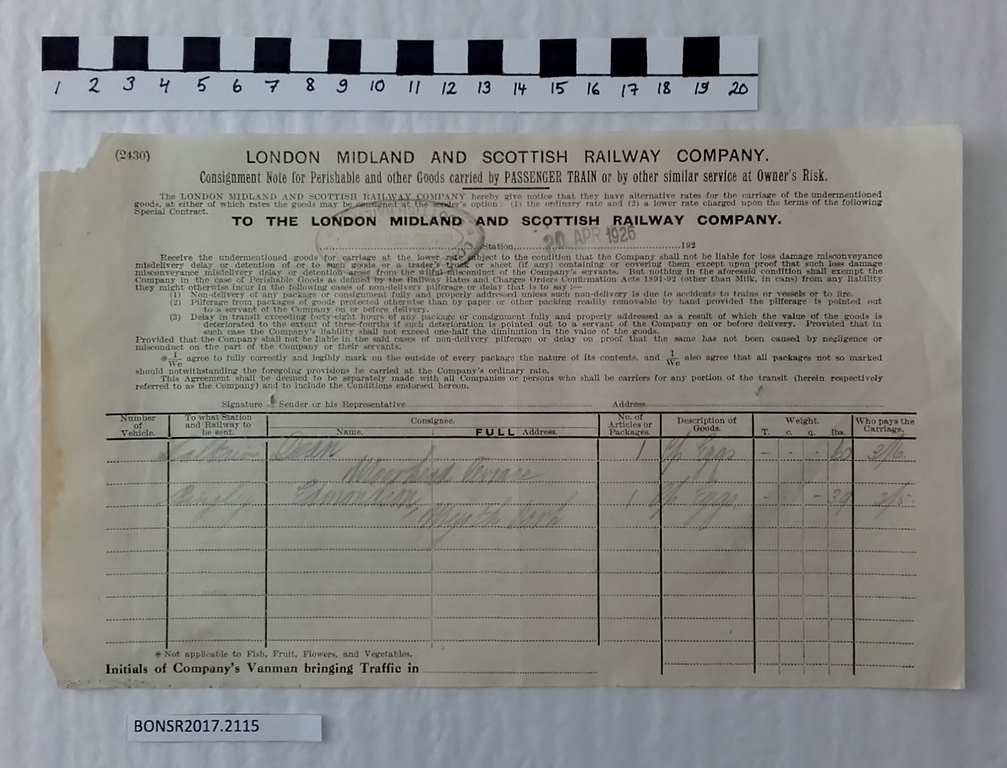 1 2 3 4 5 6 7 8 9 10 11 12 13 14 15 16 17 18 19 20
(2430)
LONDON MIDLAND AND SCOTTISH RAILWAY COMPANY.
Consignment Note for Perishable and other Goods carried by PASSENGER TRAIN or by other similar service at Owner's Risk.
The LONDON MIDLAND AND SCOTTISH RAILWAY COMPANY hereby give notice that they have alternative rates for the carriage of the undermentioned
goods, at either of which rates the goods may be consigned at the sender's option: (1) the ordinary rate and (2) a lower rate charged upon the terms of the following
Special Contract.
TO THE LONDON MIDLAND AND SCOTTISH RAILWAY COMPANY.
Station, 20 APR 1926 192
Receive the undermentioned goods for carriage at the lower rate subject to the condition that the Company shall not be liable for loss damage misconveyance
misdelivery delay or detention of or to such goods or a trader's truck or sheet (if any) containing or covering them except upon proof that such loss damage
misconveyance misdelivery delay or detention arose from the wilful misconduct of the Company's servants. But nothing in the aforesaid condition shall exempt the
Company in the case of Perishable Goods as defined by the Railway Rates and Charges Orders Confirmation Acts 1891-92 (other than Milk, in cans) from any liability
they might otherwise incur in the following cases of non-delivery pilferage or delay that is to say:—
(1) Non-delivery of any package or consignment fully and properly addressed unless such non-delivery is due to accidents to trains or vessels or to fire.
(2) Pilferage from packages of goods protected otherwise than by paper or other packing readily removable by hand provided the pilferage is pointed out
to a servant of the Company on or before delivery.
(3) Delay in transit exceeding forty-eight hours of any package or consignment fully and properly addressed as a result of which the value of the goods is
deteriorated to the extent of three-fourths if such deterioration is pointed out to a servant of the Company on or before delivery. Provided that in
such case the Company's liability shall not exceed one-half the diminution in the value of the goods.
Provided that the Company shall not be liable in the said cases of non-delivery pilferage or delay on proof that the same has not been caused by negligence or
misconduct on the part of the Company or their servants.
* I/We agree to fully correctly and legibly mark on the outside of every package the nature of its contents, and I/We also agree that all packages not so marked
should notwithstanding the foregoing provisions be carried at the Company's ordinary rate.
This Agreement shall be deemed to be separately made with all Companies or persons who shall be carriers for any portion of the transit (herein respectively
referred to as the Company) and to include the Conditions endorsed hereon.
Signature Sender or his Representative Address
Number of Vehicle. To what Station and Railway to be sent. Consignee. Name. FULL Address. No. of Articles or Packages. Description of Goods. Weight. T. c. q. lbs. Who pays the Carriage.
Dean 1 Eggs
Terrace
Edmondson 1 Eggs 39
* Not applicable to Fish, Fruit, Flowers, and Vegetables.
Initials of Company's Vanman bringing Traffic in
BONSR2017.2115